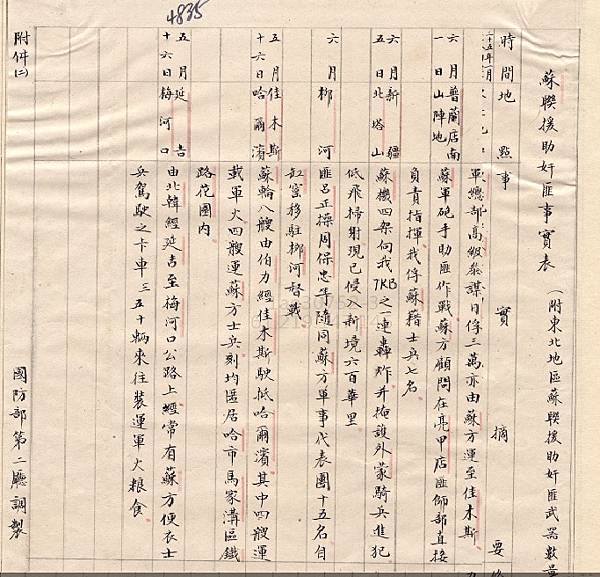 4835
蘇聯援助奸匪事實表（附東北地區蘇聯援助奸匪武器數量
時間地點事實摘要
軍總部高級參謀日俘三萬亦由蘇方運至佳木斯
六月一日
普蘭店南山陣地
蘇軍砲手助匪作戰蘇方顧問在亮甲店匪師部直接
負責指揮我俘蘇籍士兵七名
六月五日
新疆北塔山
蘇機四架向我7KB之一連轟炸并掩護外蒙騎兵進犯
低飛掃射現已侵入新境六百華里
六月
柳河
匪呂正操周保忠等隨同蘇方軍事代表團十五名自
移駐柳河督戰
五月十六日
佳木斯哈爾濱
蘇輪八艘由伯力經佳木斯駛抵哈爾濱其中四艘運
載軍火四艘運蘇方士兵刻均區居哈市馬家溝區鐵
路花園內
五月十六日
延吉梅河口
由北韓經延吉至梅河口公路上經常有蘇方便衣士
兵駕駛之卡車三五十輛來往裝運軍火粮食
附件㈡
國防部第二廳調製